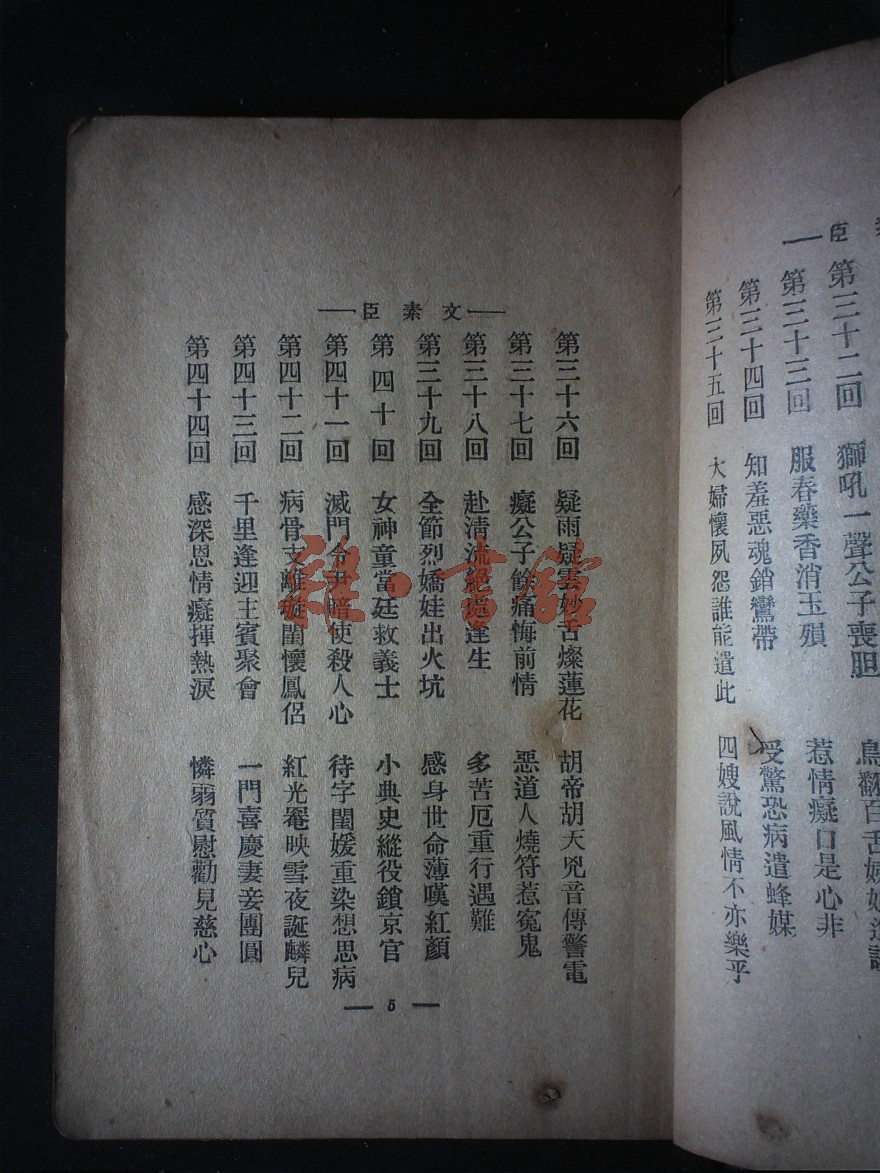 臣
第三十二回 獅吼一聲公子喪胆
第三十三回 服春藥香消玉殞 惹情癡口是心非
第三十四回 知羞惡魂銷鸞帶 受驚恐病遣蜂媒
第三十五回 大婦懷夙怨誰能遣此 四嫂說風情不亦樂乎
文素臣
第三十六回 疑雨疑雲妙舌燦蓮花 胡帝胡天兇音傳警電
第三十七回 癡公子餘痛悔前情 惡道人燒符惹寃鬼
第三十八回 赴清流絕處逢生 多苦厄重行遇難
第三十九回 全節烈嬌娃出火坑 感身世命薄嘆紅顏
第四十回 女神童當廷救義士 小典史縱役鎖京官
第四十一回 滅門令尹暗使殺人心 待字閨媛重染想思病
第四十二回 病骨支離璇閨懷鳳侶 紅光罨映雪夜誕麟兒
第四十三回 千里逢迎主賓聚會 一門喜慶妻妾團圓
第四十四回 感深恩情癡揮熱淚 憐弱質慰勸見慈心
5
雜·書館